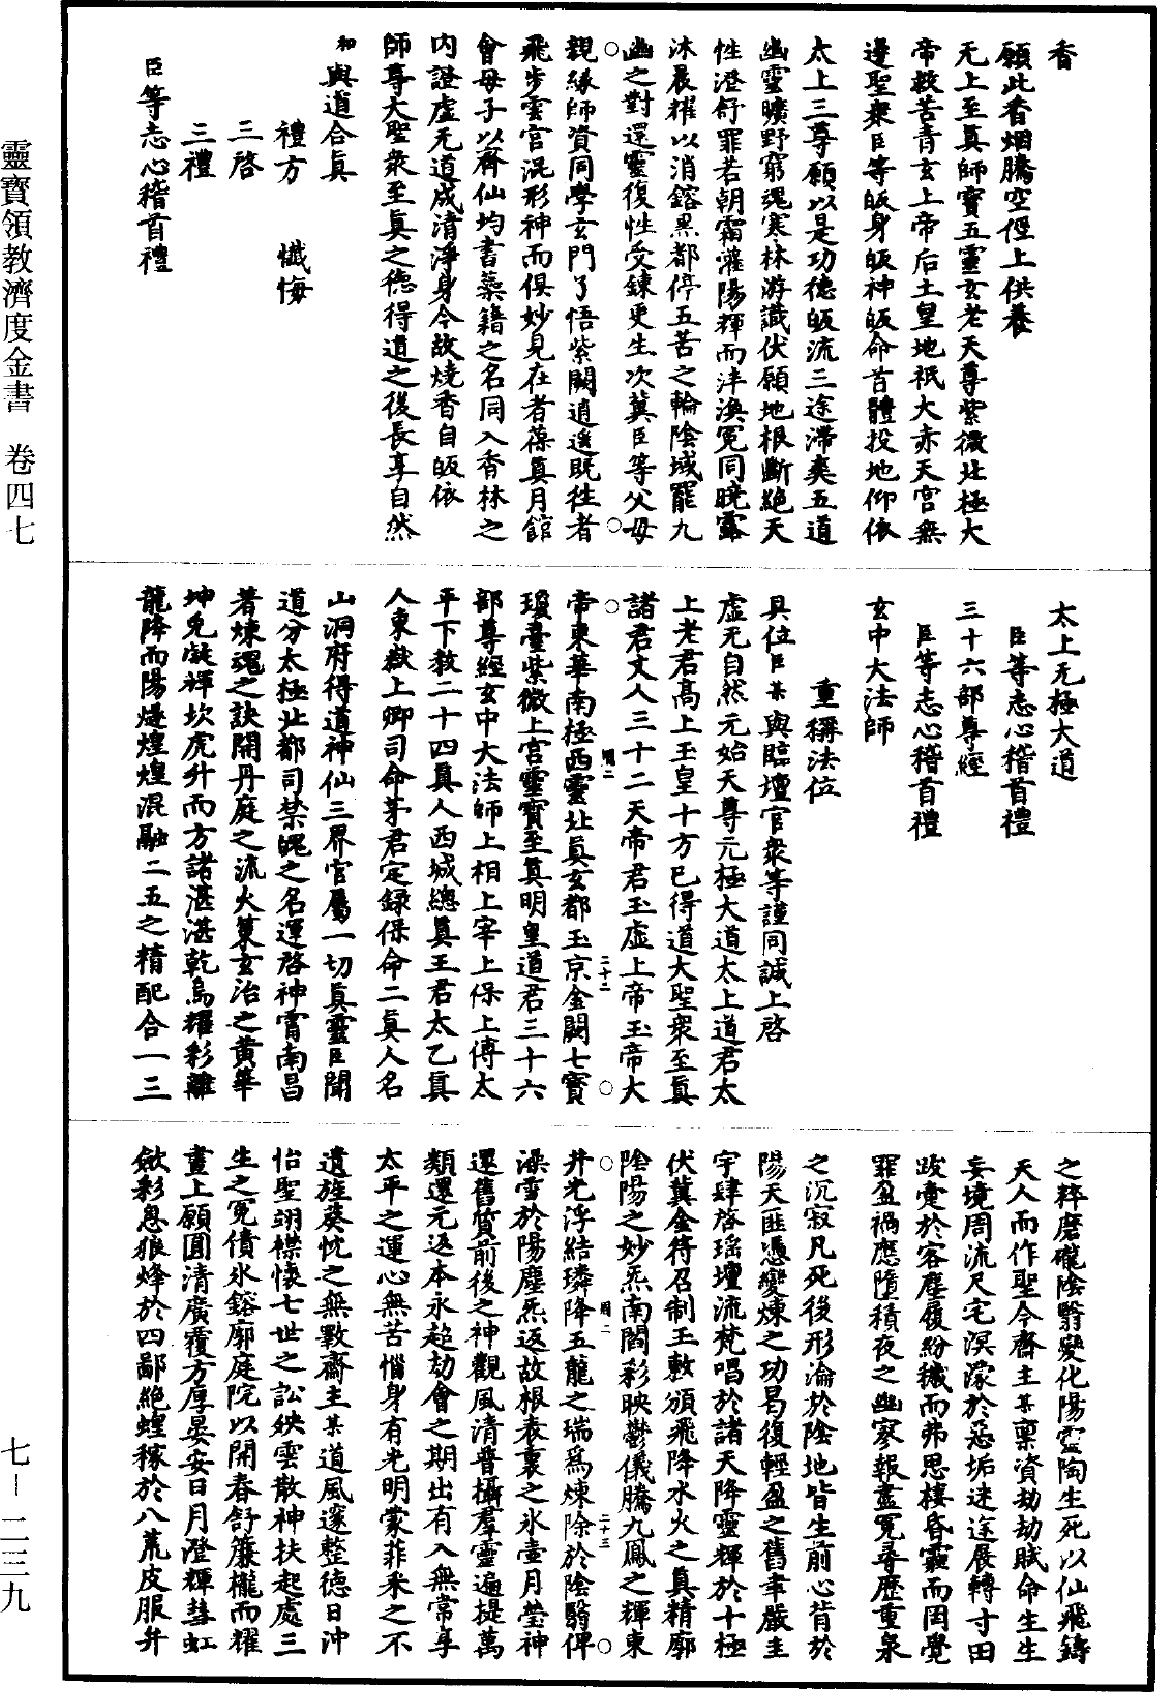 靈寶領教濟度金書　卷四七
香
願此香烟騰空徑上供養
无上至真師寶五靈玄老天尊紫微北極大
帝救苦青玄上帝后土皇地祇大赤天宮無
邊聖衆臣等皈身皈神皈命首體投地仰依
太上三尊願以是功德皈流三途滯爽五道
幽靈曠野窮魂寒林游識伏願地根斷絶天
性澄舒罪若朝霜灌陽輝而泮渙冤同曉露
沐晨耀以消鎔黑都停五苦之輪陰域罷九
幽之對還靈復性受鍊更生次冀臣等父母
親緣師資同學玄門了悟紫闕逍遙既徃者
飛步雲宮混形神而俱妙見在者葆真月館
會母子以齊仙均書蘂籍之名同入香林之
内證虛无道成清淨身今故燒香自皈依
師尊大聖衆至真之德得道之後長享自然
和與道合真
禮方　懺悔
三啓
三禮
臣等志心稽首禮
太上无極大道
臣等志心稽首禮
三十六部尊經
臣等志心稽首禮
玄中大法師
重稱法位
具位臣某與臨壇官衆等謹同誠上啓
虛无自然元始天尊元極大道太上道君太
上老君高上玉皇十方已得道大聖衆至真
諸君丈人三十二天帝君玉虛上帝玉帝大
帝東華南極西靈北真玄都玉京金闕七寶
瓊臺紫微上宮靈寶至真明皇道君三十六
部尊經玄中大法師上相上宰上保上傅太
平下教二十四真人西城總真王君太乙真
人東嶽上卿司命茅君定録保命二真人名
山洞府得道神仙三界官屬一切真靈臣聞
道分太極北都司禁魄之名運啓神霄南昌
著煉魂之訣開丹庭之流火菓玄治之黄華
坤兔凝輝坎虎升而方諸湛湛乾烏耀彩離
龍降而陽燧煌煌混融二五之精配合一三
之粹磨礲陰翳變化陽靈陶生死以仙飛鑄
天人而作聖今齋主某禀資劫劫賦命生生
妄境周流尺宅溟濛於惡垢迷途展轉寸田
跋疐於客塵履紛穢而弗思棲昏霾而罔覺
罪盈禍應墮積夜之幽寥報盡冤尋歷重泉
之沉寂凡死後形淪於陰地皆生前心背於
陽天匪憑變煉之功曷復輕盈之舊聿嚴圭
宇肆啓瑶壇流梵唱於諸天降靈輝於十極
伏冀金符召制玉敕頒飛降水火之真精廓
陰陽之妙炁南閶彩映鬱儀騰九鳳之輝東
井光浮結璘降五龍之瑞爲煉除於陰翳俾
澡雪於陽塵炁返故根表裏之氷壷月瑩神
還舊質前後之神觀風清普攝羣靈遍提萬
類還元返本永超劫會之期出有入無常享
太平之運心無苦惱身有光明蒙菲釆之不
遺旌葵忱之無斁齋主某道風邃整德日冲
怡聖翊襟懷七世之訟殃雲散神扶起處三
生之冤債氷鎔廓庭院以開春舒簾櫳而耀
晝上願圓清廣覆方厚晏安日月澄輝彗虹
斂彩息狼烽於四鄙絶蝗稼於八荒皮服卉
七－二三九